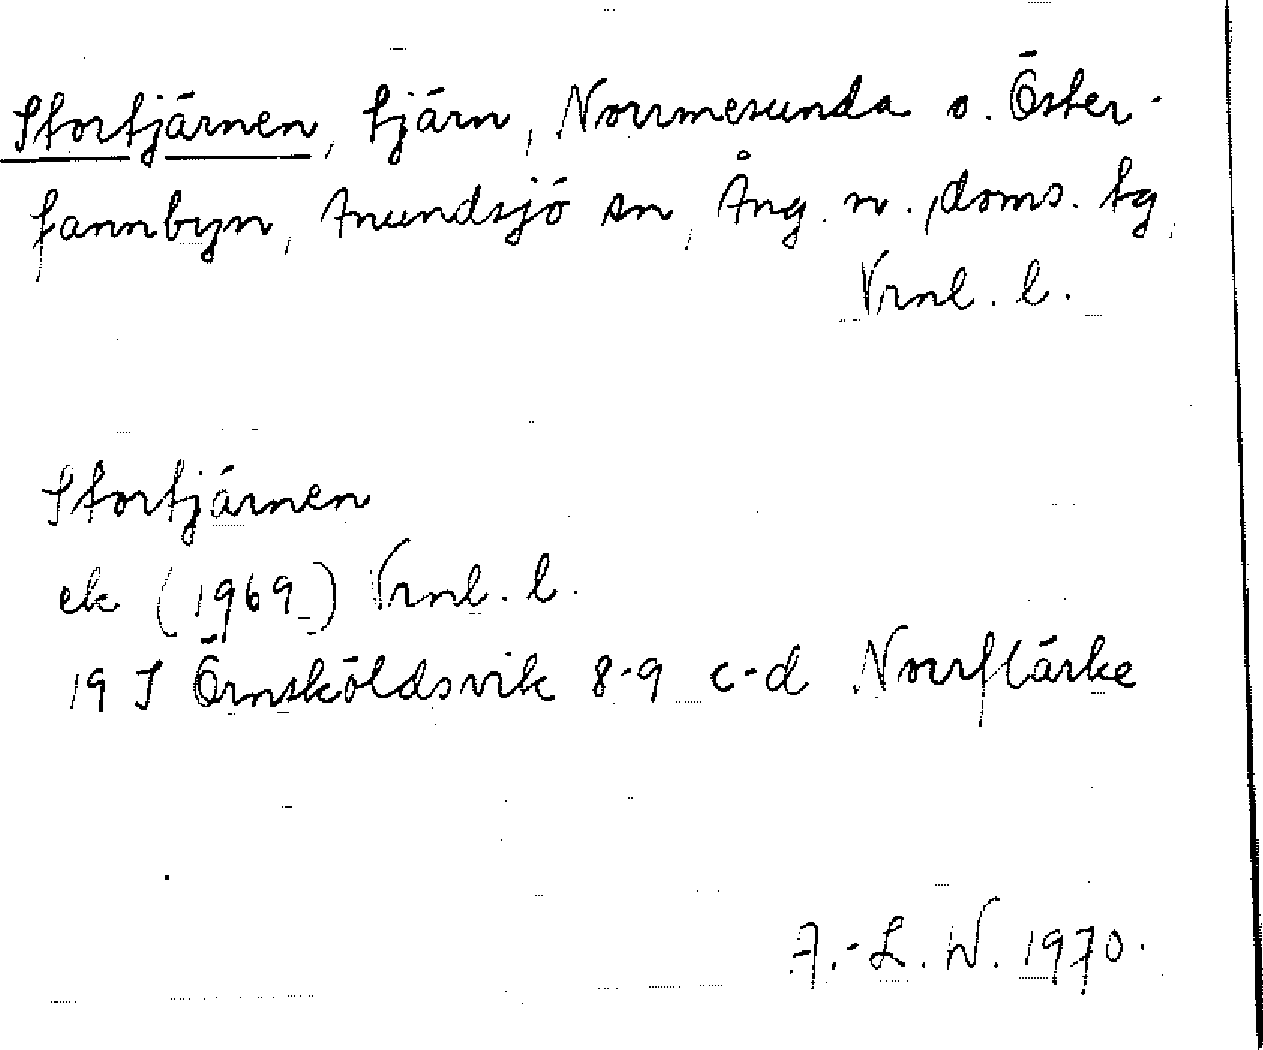 Stortjärnen, tjärn, Norrmesunda o. Öster-
fannbyn, Anundsjö sn, Ång. n., doms. tg,
Vrnl. l.
Stortjärnen
ek (1969) Vrnl. l.
19 J Örnsköldsvik 8-9 c-d Norrflärke
A.-L. W. 1970.